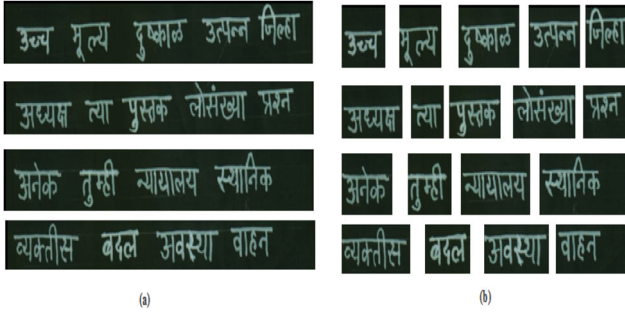 उच्च मूल्य दुष्काळ उत्पन्न जिल्हा
अध्यक्ष त्या पुस्तक लोसंख्या प्रश्न
अनेक तुम्ही न्यायालय स्थानिक
व्यक्तीस बदल अवस्था वाहन
(a)
उच्च मूल्य दुष्काळ उत्पन्न जिल्हा
अध्यक्ष त्या पुस्तक लोसंख्या प्रश्न
अनेक तुम्ही न्यायालय स्थानिक
व्यक्तीस बदल अवस्था वाहन
(b)